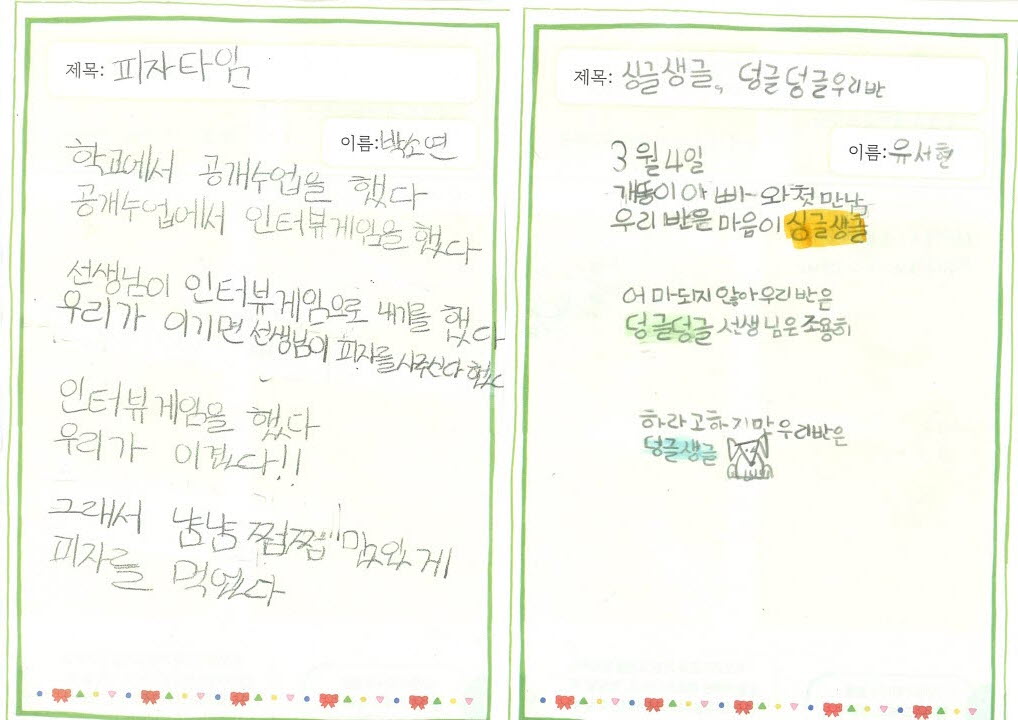 제목: 피자타임
이름:박소연
학교에서 공개수업을 했다
공개수업에서 인터뷰게임을 했다
선생님이 인터뷰게임으로 내기를 했다
우리가 이기면 선생님이 피자를 사주신다 했다
인터뷰게임을 했다
우리가 이겼다!!
그래서 냠냠 쩝쩝 맛있게
피자를 먹었다
제목: 싱글생글, 덩글덩글우리반
이름:유서현
3월4일
개똥이아빠와첫만남
우리반은마음이 싱글생글
어마되지않아우리반은
덩글덩글 선생님은조용히
하라고하기만우리반은
덩글생글